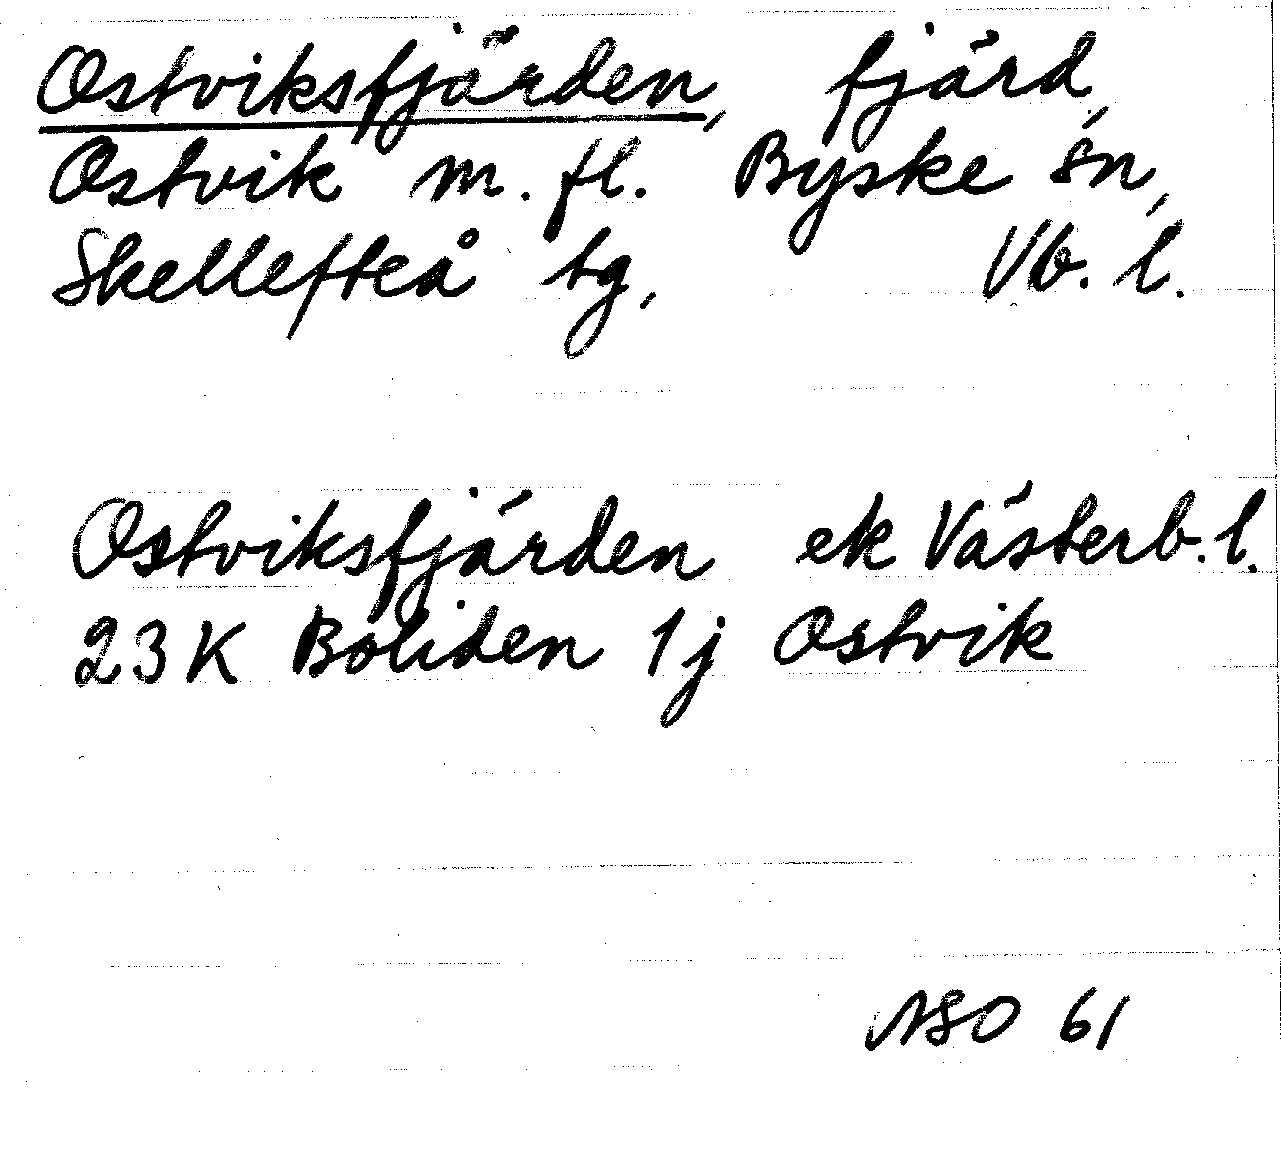 Ostviksfjärden, fjärd,
Ostvik m. fl. Byske sn,
Skellefteå tg, Vb. l.
Ostviksfjärden ek Västerb. l.
23K Boliden 1j Ostvik
ASO 61